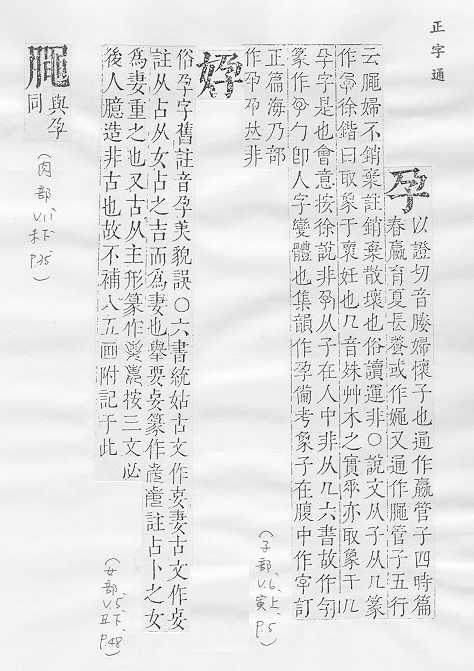 正字通
孕
以證切音媵婦懷子也通作䑉管子四時篇
春嬴育夏長養或作㜲又通作䐗管子五行
云䐗婦不銷棄註銷棄散壞也俗讀運非○說文从子从几篆
作 徐鍇曰取象于褱妊也几音殊艸木之實 亦取象于几
孕字是也會意按徐說非 从子在人中非从几六書故作
篆作 勹卽人字變體也集韻作孕備考象子在腹中作 訂
正篇海乃部
作 非
㛛
俗孕字舊註音孕美貌誤○六書統姑古文作 妻古文作
註从占从女占之吉而爲妻也舉要 篆作 註占卜之女
爲妻重之也又古从主形篆作 按三文必
後人臆造非古也故不補入五畫附記于此
䐗
與孕
同
(子部、V.6、寅上、P.5)
(女部、V.5、丑下、P.48)
(肉部 V.11 未下 P.35)